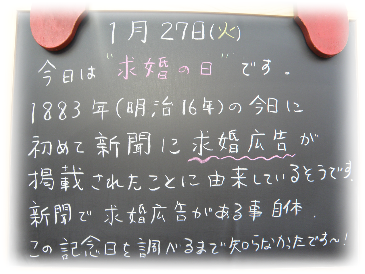 1月27日(火)
今日は"求婚の日"です。
1883年(明治16年)の今日に
初めて新聞に求婚広告が
掲載されたことに由来しているそうです。
新聞で求婚広告がある事自体、
この記念日を調べるまで知らなかったです〜!